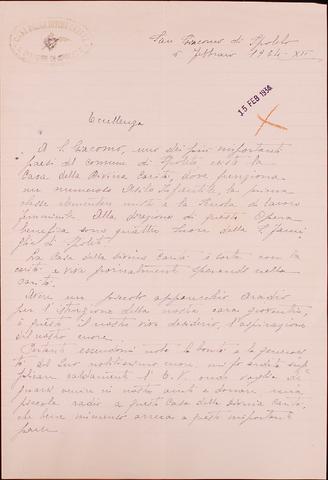 CASA DELLA DIVINA CARITÀ
San Giacomo di Spoleto
5 Febbraio 1934-XII
15 FEB 1934
Eccellenza
A S. Giacomo, uno dei più importanti
paesi del comune di Spoleto esiste la
Casa della Divina Carità, dove funziona
un numeroso Asilo Infantile, la prima
classe elementare mista e la Scuola di lavoro
femminile. Alla direzione di questa Opera
benefica sono quattro Suore della S. Fami
glia di Spoleto.
La Casa della Divina Carità è sorta con la
carità e vive giornalmente sperando nella
carità.
Avere un piccolo apparecchio aradio
per l'istruzione della nostra cara gioventù,
è questo il nostro vivo desiderio, l'aspirazione
del nostro cuore.
Pertanto essendomi nota la bontà e la generosità
del Suo nobilissimo cuore, mi fo ardita sup
plicare caldamente l'E. V. onde voglia de
gnarsi venire in nostro aiuto e donare una
piccola radio a questa Casa della Divina Carità,
che bene immenso arreca a questo importante
paese